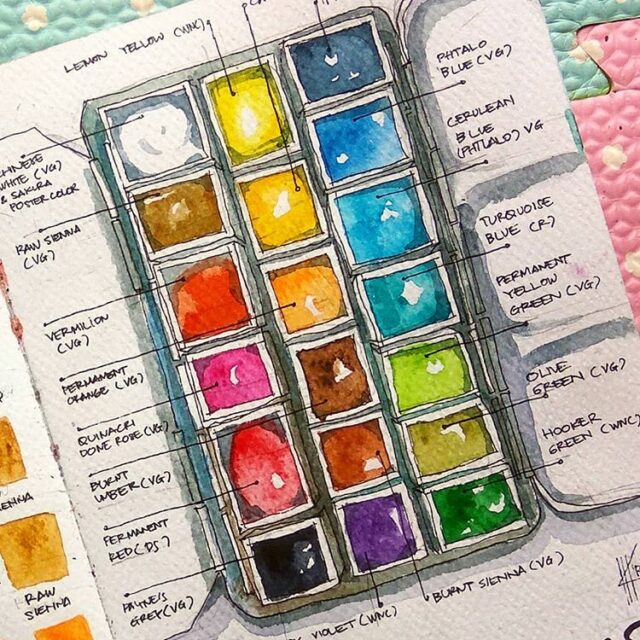 LEMON YELLOW (WNC)
WHITE (VG)
& SAKURA
POSTER COLOR
RAW SIENNA
(VG)
VERMILION
(VG)
PERMANENT
ORANGE (VG)
QUINACRI
DONE ROSE (VG)
BURNT
UMBER (VG)
PERMANENT
RED (DS)
PAYNE'S
GREY (VG)
PHTALO
BLUE (VG)
CERULEAN
BLUE
(PHTALO) VG
TURQUOISE
BLUE (R)
PERMANENT
YELLOW
GREEN (VG)
OLIVE
GREEN (VG)
HOOKER
GREEN (WNC)
BURNT SIENNA (VG)
VIOLET (WNC)
RAW
SIENNA